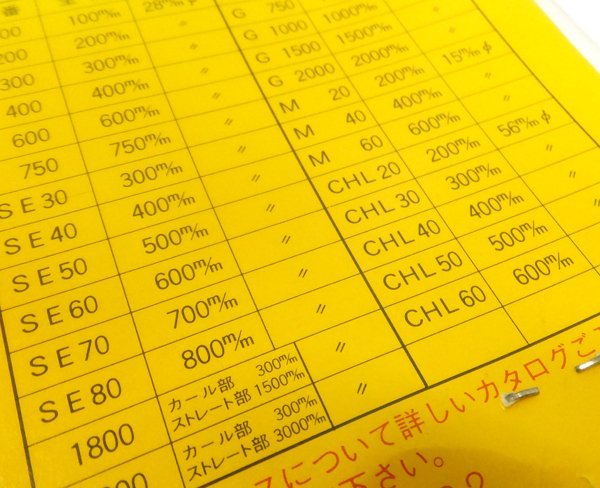 100m/m 28m/mφ
200m/m 〃
300 300m/m 〃
400 400m/m 〃
600 600m/m 〃
750 750m/m 〃
SE30 300m/m 〃
SE40 400m/m 〃
SE50 500m/m 〃
SE60 600m/m 〃
SE70 700m/m 〃
SE80 800m/m 〃
1800 カール部 300m/m 〃
ストレート部 1500m/m
カール部 300m/m 〃
ストレート部 3000m/m
G 750
G 1000 1000m/m
G 1500 1500m/m
G 2000 2000m/m
M 20 200m/m 15m/mφ
M 40 400m/m 〃
M 60 600m/m 〃
CHL 20 200m/m 56m/mφ
CHL 30 300m/m 〃
CHL 40 400m/m 〃
CHL 50 500m/m 〃
CHL 60 600m/m 〃
について詳しいカタログご
下さい。